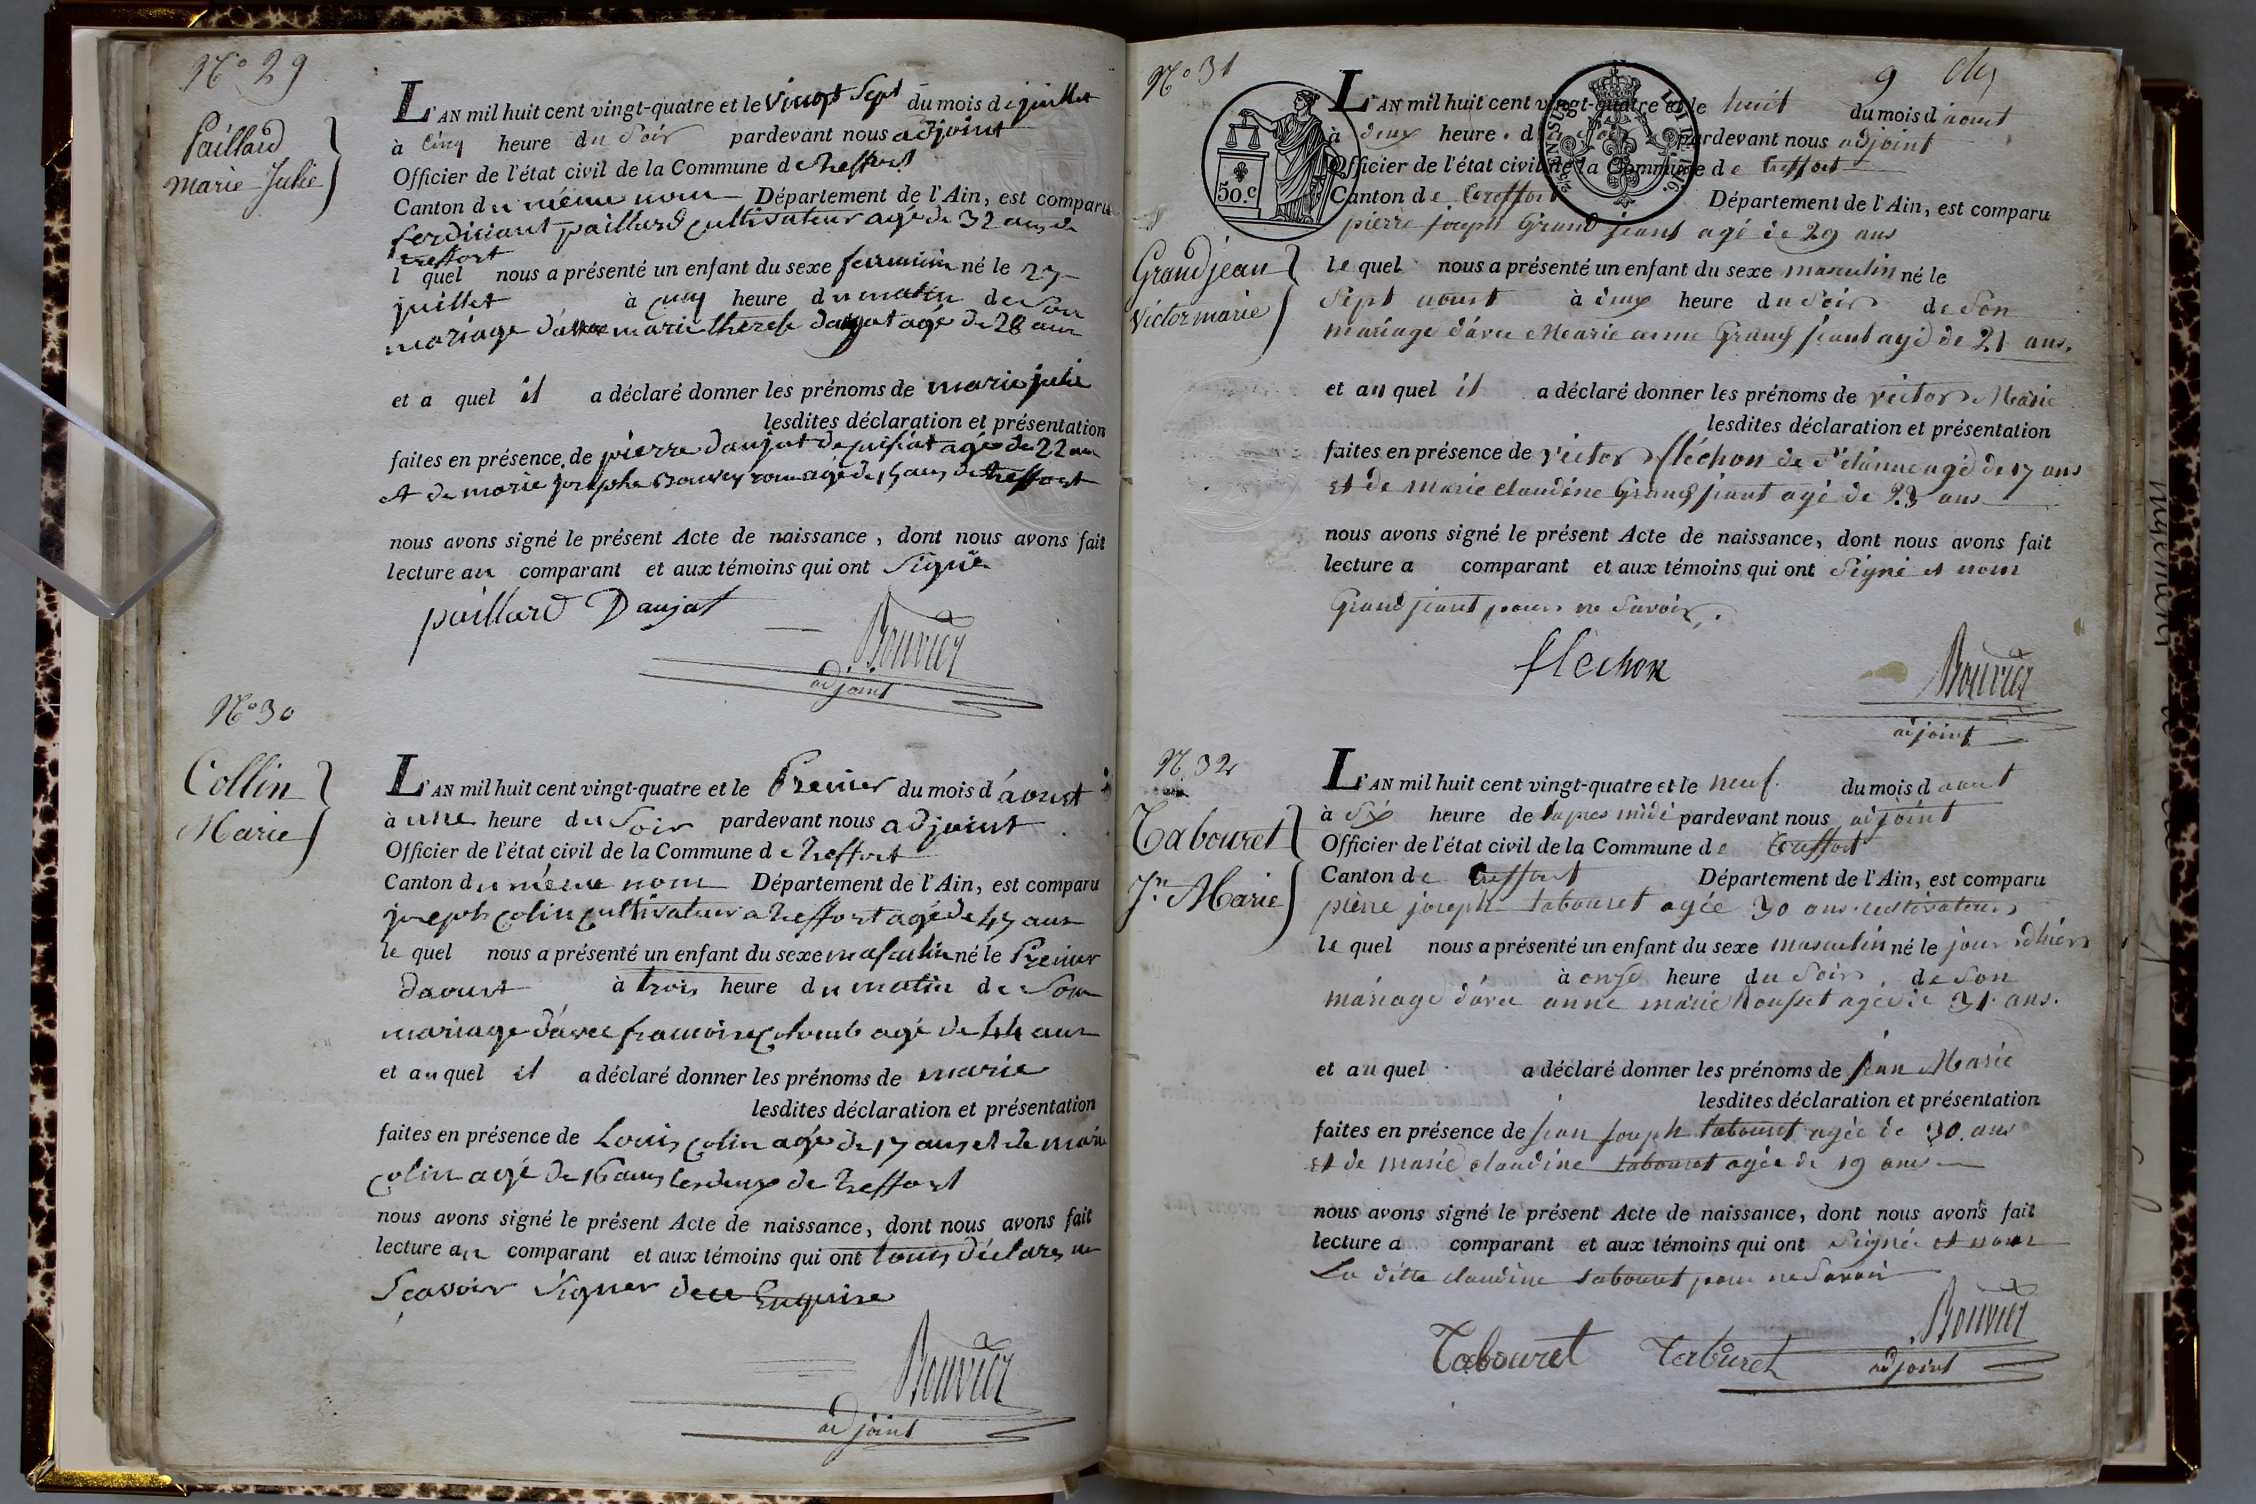 N° 29
Paillard
Marie Julie
L'AN mil huit cent vingt-quatre et le vingt sept du mois de juillet
à cinq heure du Soir pardevant nous adjoint
Officier de l'état civil de la Commune de treffort
Canton du même nom Département de l'Ain, est comparu
ferdinant paillard cultivateur agé de 32 ans de
treffort
l quel nous a présenté un enfant du sexe feminin né le 27
juillet à cinq heure du matin de Son
mariage d'avec marie therese daujat agé de 28 ans
et a quel il a déclaré donner les prénoms de marie julie
lesdites déclaration et présentation
faites en présence de pierre daujat de agé de 22 ans
et de marie josephe agé de 15 ans de treffort
nous avons signé le présent Acte de naissance, dont nous avons fait
lecture au comparant et aux témoins qui ont Signé
paillard Daujat
Bouvier
adjoint
N° 30
Collin
Marie
L'AN mil huit cent vingt-quatre et le Premier du mois d'aoust
à une heure du Soir pardevant nous adjoint
Officier de l'état civil de la Commune de treffort
Canton du même nom Département de l'Ain, est comparu
joseph Colin cultivateur a treffort agé de 47 ans
le quel nous a présenté un enfant du sexe masculin né le Premier
daoust à trois heure du matin de Son
mariage d'avec francoise Colomb agé de 44 ans
et au quel il a déclaré donner les prénoms de marie
lesdites déclaration et présentation
faites en présence de Louis Colin agé de 17 ans et de marie
Colin agé de 16 ans les deux de treffort
nous avons signé le présent Acte de naissance, dont nous avons fait
lecture au comparant et aux témoins qui ont tous déclarés ne
Scavoir Signer de ce Enquire
Bouvier
adjoint
N° 31
9
50.c
Grandjean
Victor marie
L'AN mil huit cent vingt-quatre et le huit du mois d'aoust
à deux heure du Soir pardevant nous adjoint
Officier de l'état civil de la Commune de treffort
Canton de treffort Département de l'Ain, est comparu
pierre joseph Grand jeant agé de 29 ans
le quel nous a présenté un enfant du sexe masculin né le
Sept aoust à deux heure du Soir de Son
mariage d'avec Marie anne Grand jeant agé de 21 ans.
et au quel il a déclaré donner les prénoms de victor Marie
lesdites déclaration et présentation
faites en présence de victor fléchon de St étienne agé de 17 ans
et de marie claudine Grand jeant agé de 23 ans
nous avons signé le présent Acte de naissance, dont nous avons fait
lecture a comparant et aux témoins qui ont Signé et nom
Grand jeant pour ne Savoir.
fléchon
Bouvier
adjoint
N. 32
Tabouret
Jn. Marie
L'AN mil huit cent vingt-quatre et le neuf du mois d aout
à Six heure de lapres midi pardevant nous adjoint
Officier de l'état civil de la Commune de treffort
Canton de treffort Département de l'Ain, est comparu
pierre joseph tabouret agée 30 ans cultivateur
le quel nous a présenté un enfant du sexe masculin né le jour dhier
à onze heure du Soir de Son
mariage d'avec anne marie Rousset agée de 31 ans.
et au quel a déclaré donner les prénoms de jean Marie
lesdites déclaration et présentation
faites en présence de jean joseph tabouret agée de 30 ans
et de marie claudine tabouret agée de 19 ans
nous avons signé le présent Acte de naissance, dont nous avons fait
lecture a comparant et aux témoins qui ont Signé et nom
La ditte claudine tabouret pour ne Savoir
Tabouret Tabouret
Bouvier
adjoint